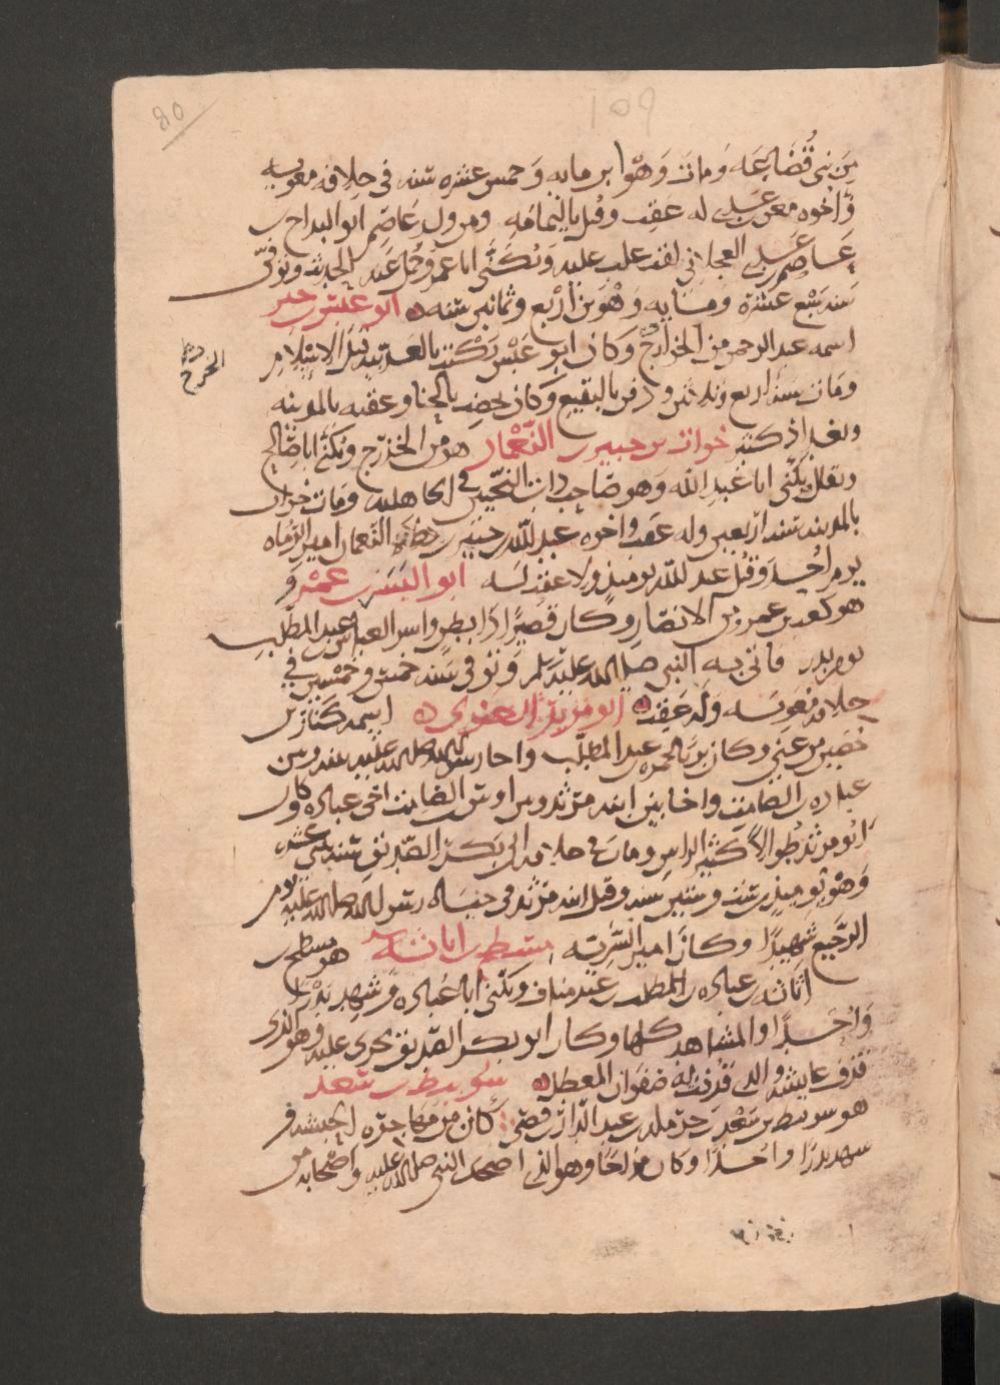 80
109
من بني قُضَاعَه وَمات وَهْو ابن مايه وَخمس عشره سَنه في خلافه معويه
وَأخوه معن بن عدي له عقِب وقُتل باليمامَه ومن ولد عَاصِم ابو البداح بن
عَاصم بن عدي العجلاني لقب غلب عليه وَيُكنَّى ابا عمرو قليل الحديث وتوفّي
سَنه سَبْع عشرة ومايه وَهْو بن أربع وثمانين سَنه ابو عبس بن جبر
اسمه عبد الرحمن من الخزرَج وكان ابو عَبْس يكتب بالعربيّه قبل الإسْلام
الخزرج
ومات سنه اربع وثلاثين ودفن بالبقيع وكان يخضب بالحنا وعقبه بالمدينه
وبغداذ كثير خوات بن جبير بن النّعْمان هو من الخزرج ويُكَنَّى اباصَالح
ويقال يُكنّى ابا عَبد الله وهو صَاحِب ذات النحّيين في الجاهليه ومَات خوات
بالمدينه سَنه اربعين وله عَقب واخوه عبد الله بن جبير بن النّعمان امير الرّماه
يوم اُحُد وَقُتل عبد الله يومئذ ولا عقب له ابو اليَسَر كعب بن عَمْرو
هو كعب بن عمرو من الانصَار وكان قصيرًا ذا بطن واسر العباس بن عبد المطّلب
يوم بدر فاتى به النبي صلى الله عليه وسلم وَتُوفي سَنه خمس وخمسين في
خلافه معويه وَله عَقب ابو مَرْثد الغنوي اسمه كنّاز بن
حُصَين من غني وكان تِربًا لحمزه بن عبد المطلّب واخا رسول الله صلى الله عليه بينه وبين
عباده بن الصّامت واخا بين ابنه مَرثد وبين اوس بن الصّامت اخي عباده وكان
ابُو مَرْثد طُوالًا كثير الراس ومات في خلافه ابي بَكر الصّديق سَنه اثنتي عشره
وَهْو يوميذ بن ست وستين سنه وقتل ابنه مَرْثد في حياه رسول الله صلى الله عليه يوم
الرّجيع شَهيدًا وكانَ امير السّريّه مِسْطح بن اثاثه هو مسطح بن
اثاثه بن عباده بن المطلب بن عَبد مناف ويكنّى ابا عُبَاده وشَهِد بَدْرًا
وَاُحُدًا والمشاهد كلها وكان ابو بكر الصّديق يُجري عليه وهو الذي
قذف عايشه والذي قُذفت به صَفوان بن المعطل سُويبط بن سَعد
هو سويبط بن سَعْد بن حَرْمله بن عبد الدّار بن قُصَي كان من مهاجره الحبشه
شهد بدرًا واحُدًا وكان مزاحًا وهو الذي اضحك النبي صلى الله عليه واصْحَابه من